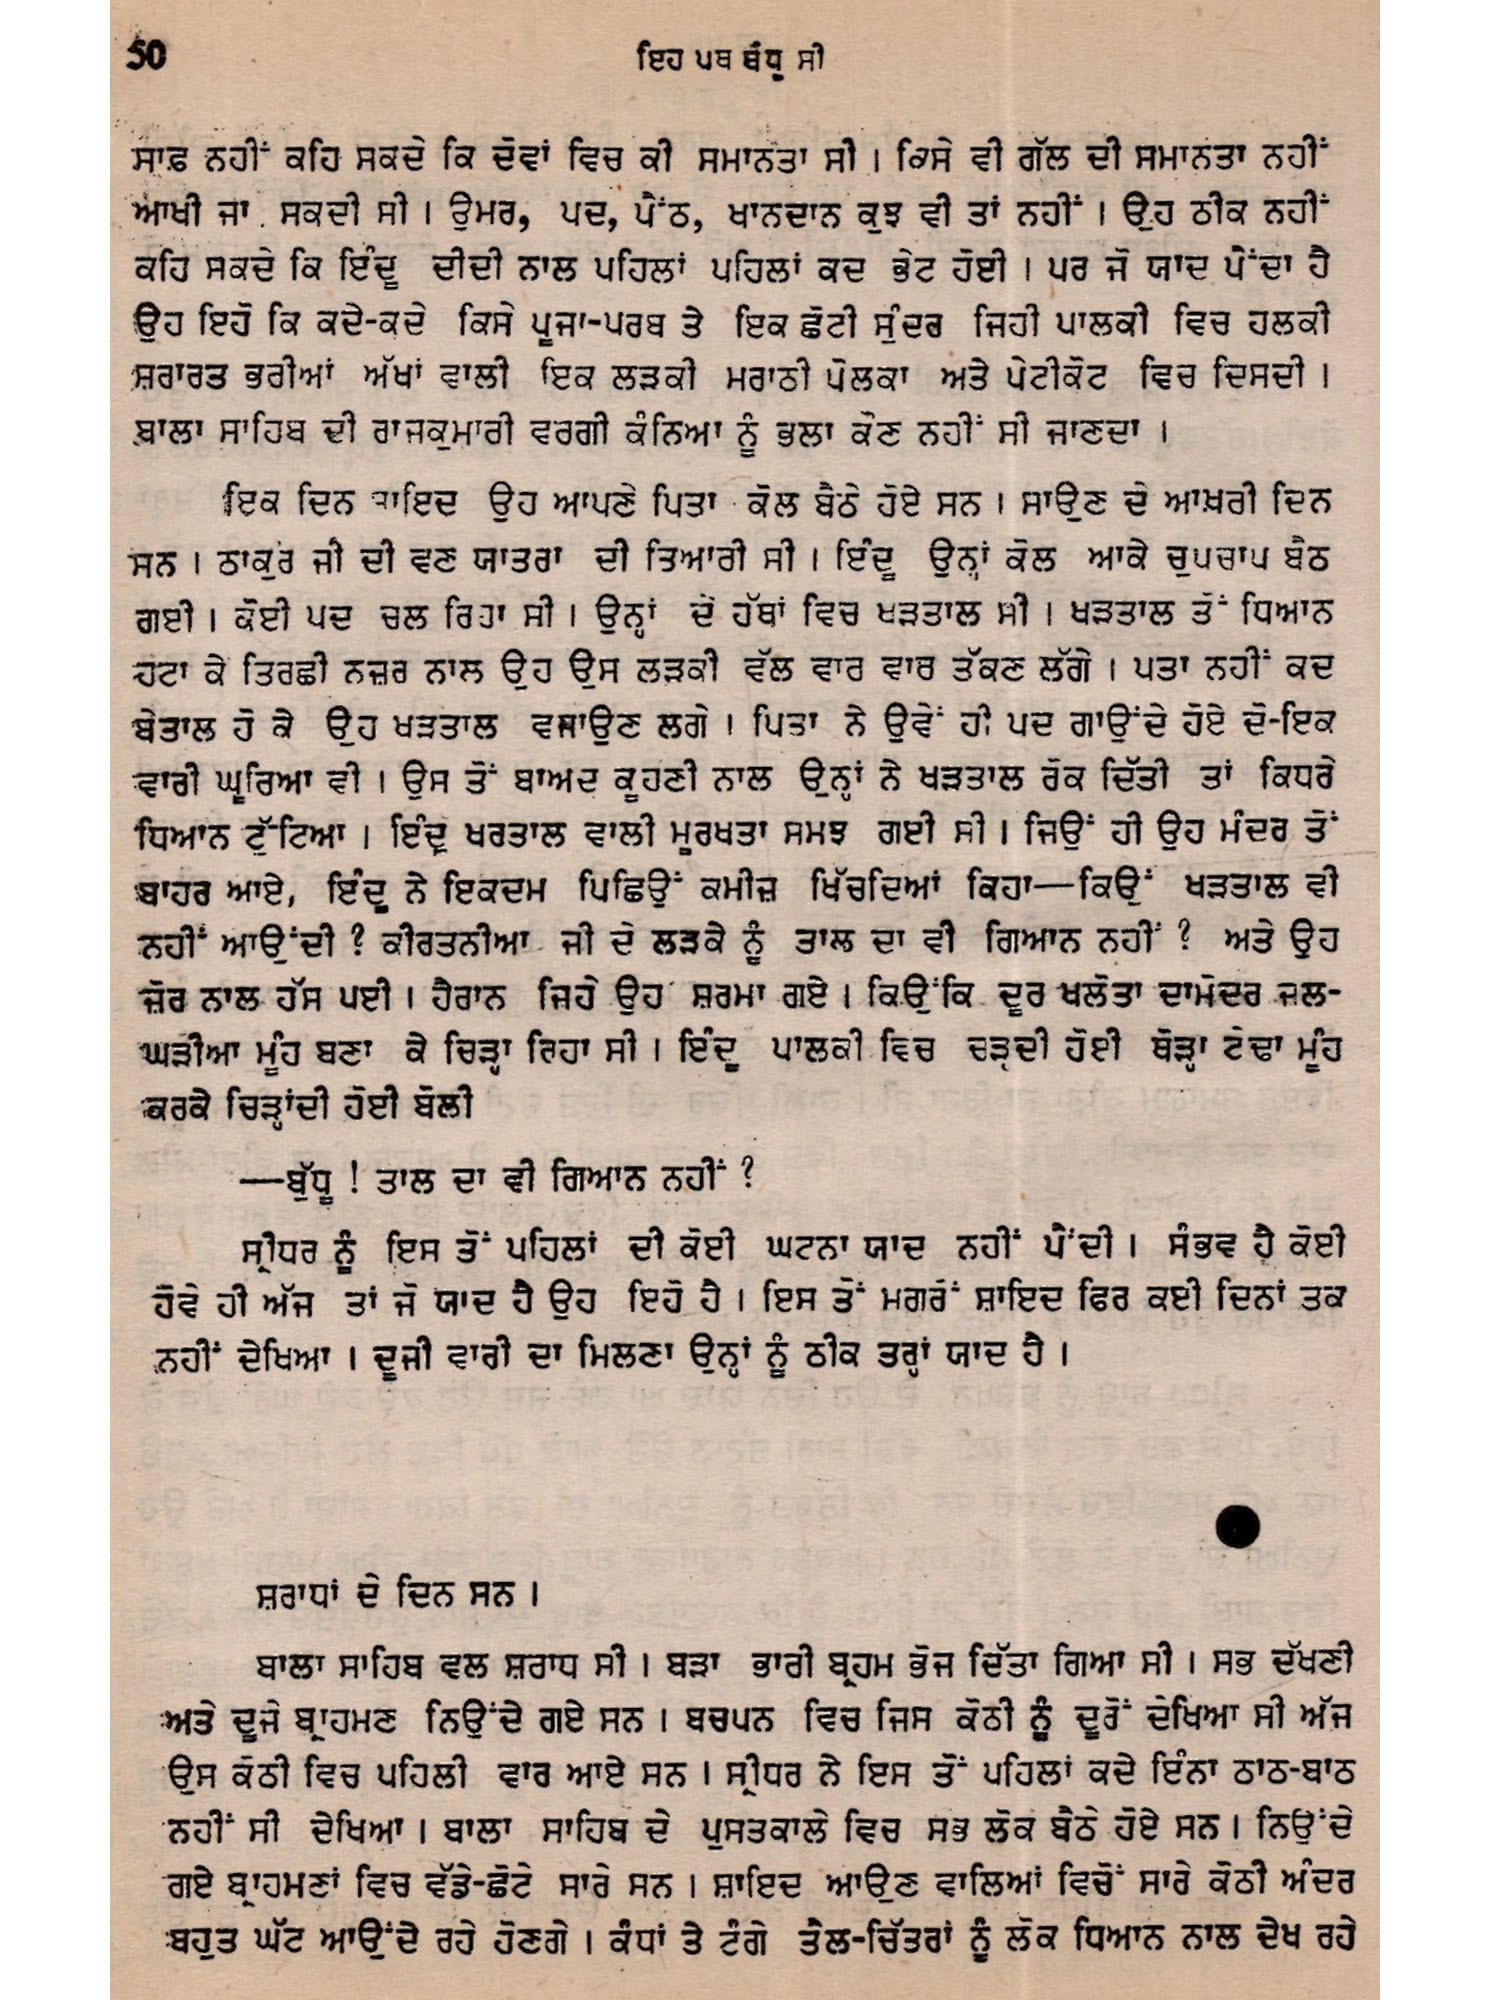 50
ਇਹ ਪਥ ਬੰਧੂ ਸੀ
ਸਾਫ਼ ਨਹੀਂ ਕਹਿ ਸਕਦੇ ਕਿ ਦੋਵਾਂ ਵਿਚ ਕੀ ਸਮਾਨਤਾ ਸੀ । ਕਿਸੇ ਵੀ ਗੱਲ ਦੀ ਸਮਾਨਤਾ ਨਹੀਂ
ਆਖੀ ਜਾ ਸਕਦੀ ਸੀ । ਉਮਰ, ਪਦ, ਪੈਂਠ, ਖਾਨਦਾਨ ਕੁਝ ਵੀ ਤਾਂ ਨਹੀਂ । ਉਹ ਠੀਕ ਨਹੀਂ
ਕਹਿ ਸਕਦੇ ਕਿ ਇੰਦੂ ਦੀਦੀ ਨਾਲ ਪਹਿਲਾਂ ਪਹਿਲਾਂ ਕਦ ਭੇਟ ਹੋਈ । ਪਰ ਜੋ ਯਾਦ ਪੈਂਦਾ ਹੈ
ਉਹ ਇਹੋ ਕਿ ਕਦੇ-ਕਦੇ ਕਿਸੇ ਪੂਜਾ-ਪਰਬ ਤੇ ਇਕ ਛੋਟੀ ਸੁੰਦਰ ਜਿਹੀ ਪਾਲਕੀ ਵਿਚ ਹਲਕੀ
ਸ਼ਰਾਰਤ ਭਰੀਆਂ ਅੱਖਾਂ ਵਾਲੀ ਇਕ ਲੜਕੀ ਮਰਾਠੀ ਪੋਲਕਾ ਅਤੇ ਪੇਟੀਕੋਟ ਵਿਚ ਦਿਸਦੀ ।
ਬਾਲਾ ਸਾਹਿਬ ਦੀ ਰਾਜਕੁਮਾਰੀ ਵਰਗੀ ਕੰਨਿਆ ਨੂੰ ਭਲਾ ਕੌਣ ਨਹੀਂ ਸੀ ਜਾਣਦਾ ।
ਇਕ ਦਿਨ ਸ਼ਾਇਦ ਉਹ ਆਪਣੇ ਪਿਤਾ ਕੋਲ ਬੈਠੇ ਹੋਏ ਸਨ । ਸਾਉਣ ਦੇ ਆਖ਼ਰੀ ਦਿਨ
ਸਨ । ਠਾਕੁਰ ਜੀ ਦੀ ਵਣ ਯਾਤਰਾ ਦੀ ਤਿਆਰੀ ਸੀ । ਇੰਦੂ ਉਨ੍ਹਾਂ ਕੋਲ ਆਕੇ ਚੁਪਚਾਪ ਬੈਠ
ਗਈ । ਕੋਈ ਪਦ ਚਲ ਰਿਹਾ ਸੀ । ਉਨ੍ਹਾਂ ਦੇ ਹੱਥਾਂ ਵਿਚ ਖੜਤਾਲ ਸੀ । ਖੜਤਾਲ ਤੋਂ ਧਿਆਨ
ਹਟਾ ਕੇ ਤਿਰਛੀ ਨਜ਼ਰ ਨਾਲ ਉਹ ਉਸ ਲੜਕੀ ਵੱਲ ਵਾਰ ਵਾਰ ਤੱਕਣ ਲੱਗੇ । ਪਤਾ ਨਹੀਂ ਕਦ
ਬੇਤਾਲ ਹੋ ਕੇ ਉਹ ਖੜਤਾਲ ਵਜਾਉਣ ਲਗੇ । ਪਿਤਾ ਨੇ ਉਵੇਂ ਹੀ ਪਦ ਗਾਉਂਦੇ ਹੋਏ ਦੋ-ਇਕ
ਵਾਰੀ ਘੂਰਿਆ ਵੀ । ਉਸ ਤੋਂ ਬਾਅਦ ਕੂਹਣੀ ਨਾਲ ਉਨ੍ਹਾਂ ਨੇ ਖੜਤਾਲ ਰੋਕ ਦਿੱਤੀ ਤਾਂ ਕਿਧਰੇ
ਧਿਆਨ ਟੁੱਟਿਆ । ਇੰਦੂ ਖਰਤਾਲ ਵਾਲੀ ਮੂਰਖਤਾ ਸਮਝ ਗਈ ਸੀ । ਜਿਉਂ ਹੀ ਉਹ ਮੰਦਰ ਤੋਂ
ਬਾਹਰ ਆਏ, ਇੰਦੂ ਨੇ ਇਕਦਮ ਪਿਛਿਉਂ ਕਮੀਜ਼ ਖਿੱਚਦਿਆਂ ਕਿਹਾ—ਕਿਉਂ ਖੜਤਾਲ ਵੀ
ਨਹੀਂ ਆਉਂਦੀ ? ਕੀਰਤਨੀਆ ਜੀ ਦੇ ਲੜਕੇ ਨੂੰ ਤਾਲ ਦਾ ਵੀ ਗਿਆਨ ਨਹੀਂ ? ਅਤੇ ਉਹ
ਜ਼ੋਰ ਨਾਲ ਹੱਸ ਪਈ । ਹੈਰਾਨ ਜਿਹੇ ਉਹ ਸ਼ਰਮਾ ਗਏ । ਕਿਉਂਕਿ ਦੂਰ ਖਲੋਤਾ ਦਾਮੋਦਰ ਜਲ-
ਘੜੀਆ ਮੂੰਹ ਬਣਾ ਕੇ ਚਿੜ੍ਹਾ ਰਿਹਾ ਸੀ । ਇੰਦੂ ਪਾਲਕੀ ਵਿਚ ਚੜ੍ਹਦੀ ਹੋਈ ਥੋੜ੍ਹਾ ਟੇਢਾ ਮੂੰਹ
ਕਰਕੇ ਚਿੜ੍ਹਾਂਦੀ ਹੋਈ ਬੋਲੀ
—ਬੁੱਧੂ ! ਤਾਲ ਦਾ ਵੀ ਗਿਆਨ ਨਹੀਂ ?
ਸ੍ਰੀਧਰ ਨੂੰ ਇਸ ਤੋਂ ਪਹਿਲਾਂ ਦੀ ਕੋਈ ਘਟਨਾ ਯਾਦ ਨਹੀਂ ਪੈਂਦੀ । ਸੰਭਵ ਹੈ ਕੋਈ
ਹੋਵੇ ਹੀ ਅੱਜ ਤਾਂ ਜੋ ਯਾਦ ਹੈ ਉਹ ਇਹੋ ਹੈ । ਇਸ ਤੋਂ ਮਗਰੋਂ ਸ਼ਾਇਦ ਫਿਰ ਕਈ ਦਿਨਾਂ ਤਕ
ਨਹੀਂ ਦੇਖਿਆ । ਦੂਜੀ ਵਾਰੀ ਦਾ ਮਿਲਣਾ ਉਨ੍ਹਾਂ ਨੂੰ ਠੀਕ ਤਰ੍ਹਾਂ ਯਾਦ ਹੈ ।
ਸ਼ਰਾਧਾਂ ਦੇ ਦਿਨ ਸਨ ।
ਬਾਲਾ ਸਾਹਿਬ ਵਲ ਸ਼ਰਾਧ ਸੀ । ਬੜਾ ਭਾਰੀ ਬ੍ਰਹਮ ਭੋਜ ਦਿੱਤਾ ਗਿਆ ਸੀ । ਸਭ ਦੱਖਣੀ
ਅਤੇ ਦੂਜੇ ਬ੍ਰਾਹਮਣ ਨਿਉਂਦੇ ਗਏ ਸਨ । ਬਚਪਨ ਵਿਚ ਜਿਸ ਕੋਠੀ ਨੂੰ ਦੂਰੋਂ ਦੇਖਿਆ ਸੀ ਅੱਜ
ਉਸ ਕੋਠੀ ਵਿਚ ਪਹਿਲੀ ਵਾਰ ਆਏ ਸਨ । ਸ੍ਰੀਧਰ ਨੇ ਇਸ ਤੋਂ ਪਹਿਲਾਂ ਕਦੇ ਇੰਨਾ ਠਾਠ-ਬਾਠ
ਨਹੀਂ ਸੀ ਦੇਖਿਆ । ਬਾਲਾ ਸਾਹਿਬ ਦੇ ਪੁਸਤਕਾਲੇ ਵਿਚ ਸਭ ਲੋਕ ਬੈਠੇ ਹੋਏ ਸਨ । ਨਿਉਂਦੇ
ਗਏ ਬ੍ਰਾਹਮਣਾਂ ਵਿਚ ਵੱਡੇ-ਛੋਟੇ ਸਾਰੇ ਸਨ । ਸ਼ਾਇਦ ਆਉਣ ਵਾਲਿਆਂ ਵਿਚੋਂ ਸਾਰੇ ਕੋਠੀ ਅੰਦਰ
ਬਹੁਤ ਘੱਟ ਆਉਂਦੇ ਰਹੇ ਹੋਣਗੇ । ਕੰਧਾਂ ਤੇ ਟੰਗੇ ਤੈਲ-ਚਿੱਤਰਾਂ ਨੂੰ ਲੋਕ ਧਿਆਨ ਨਾਲ ਦੇਖ ਰਹੇ